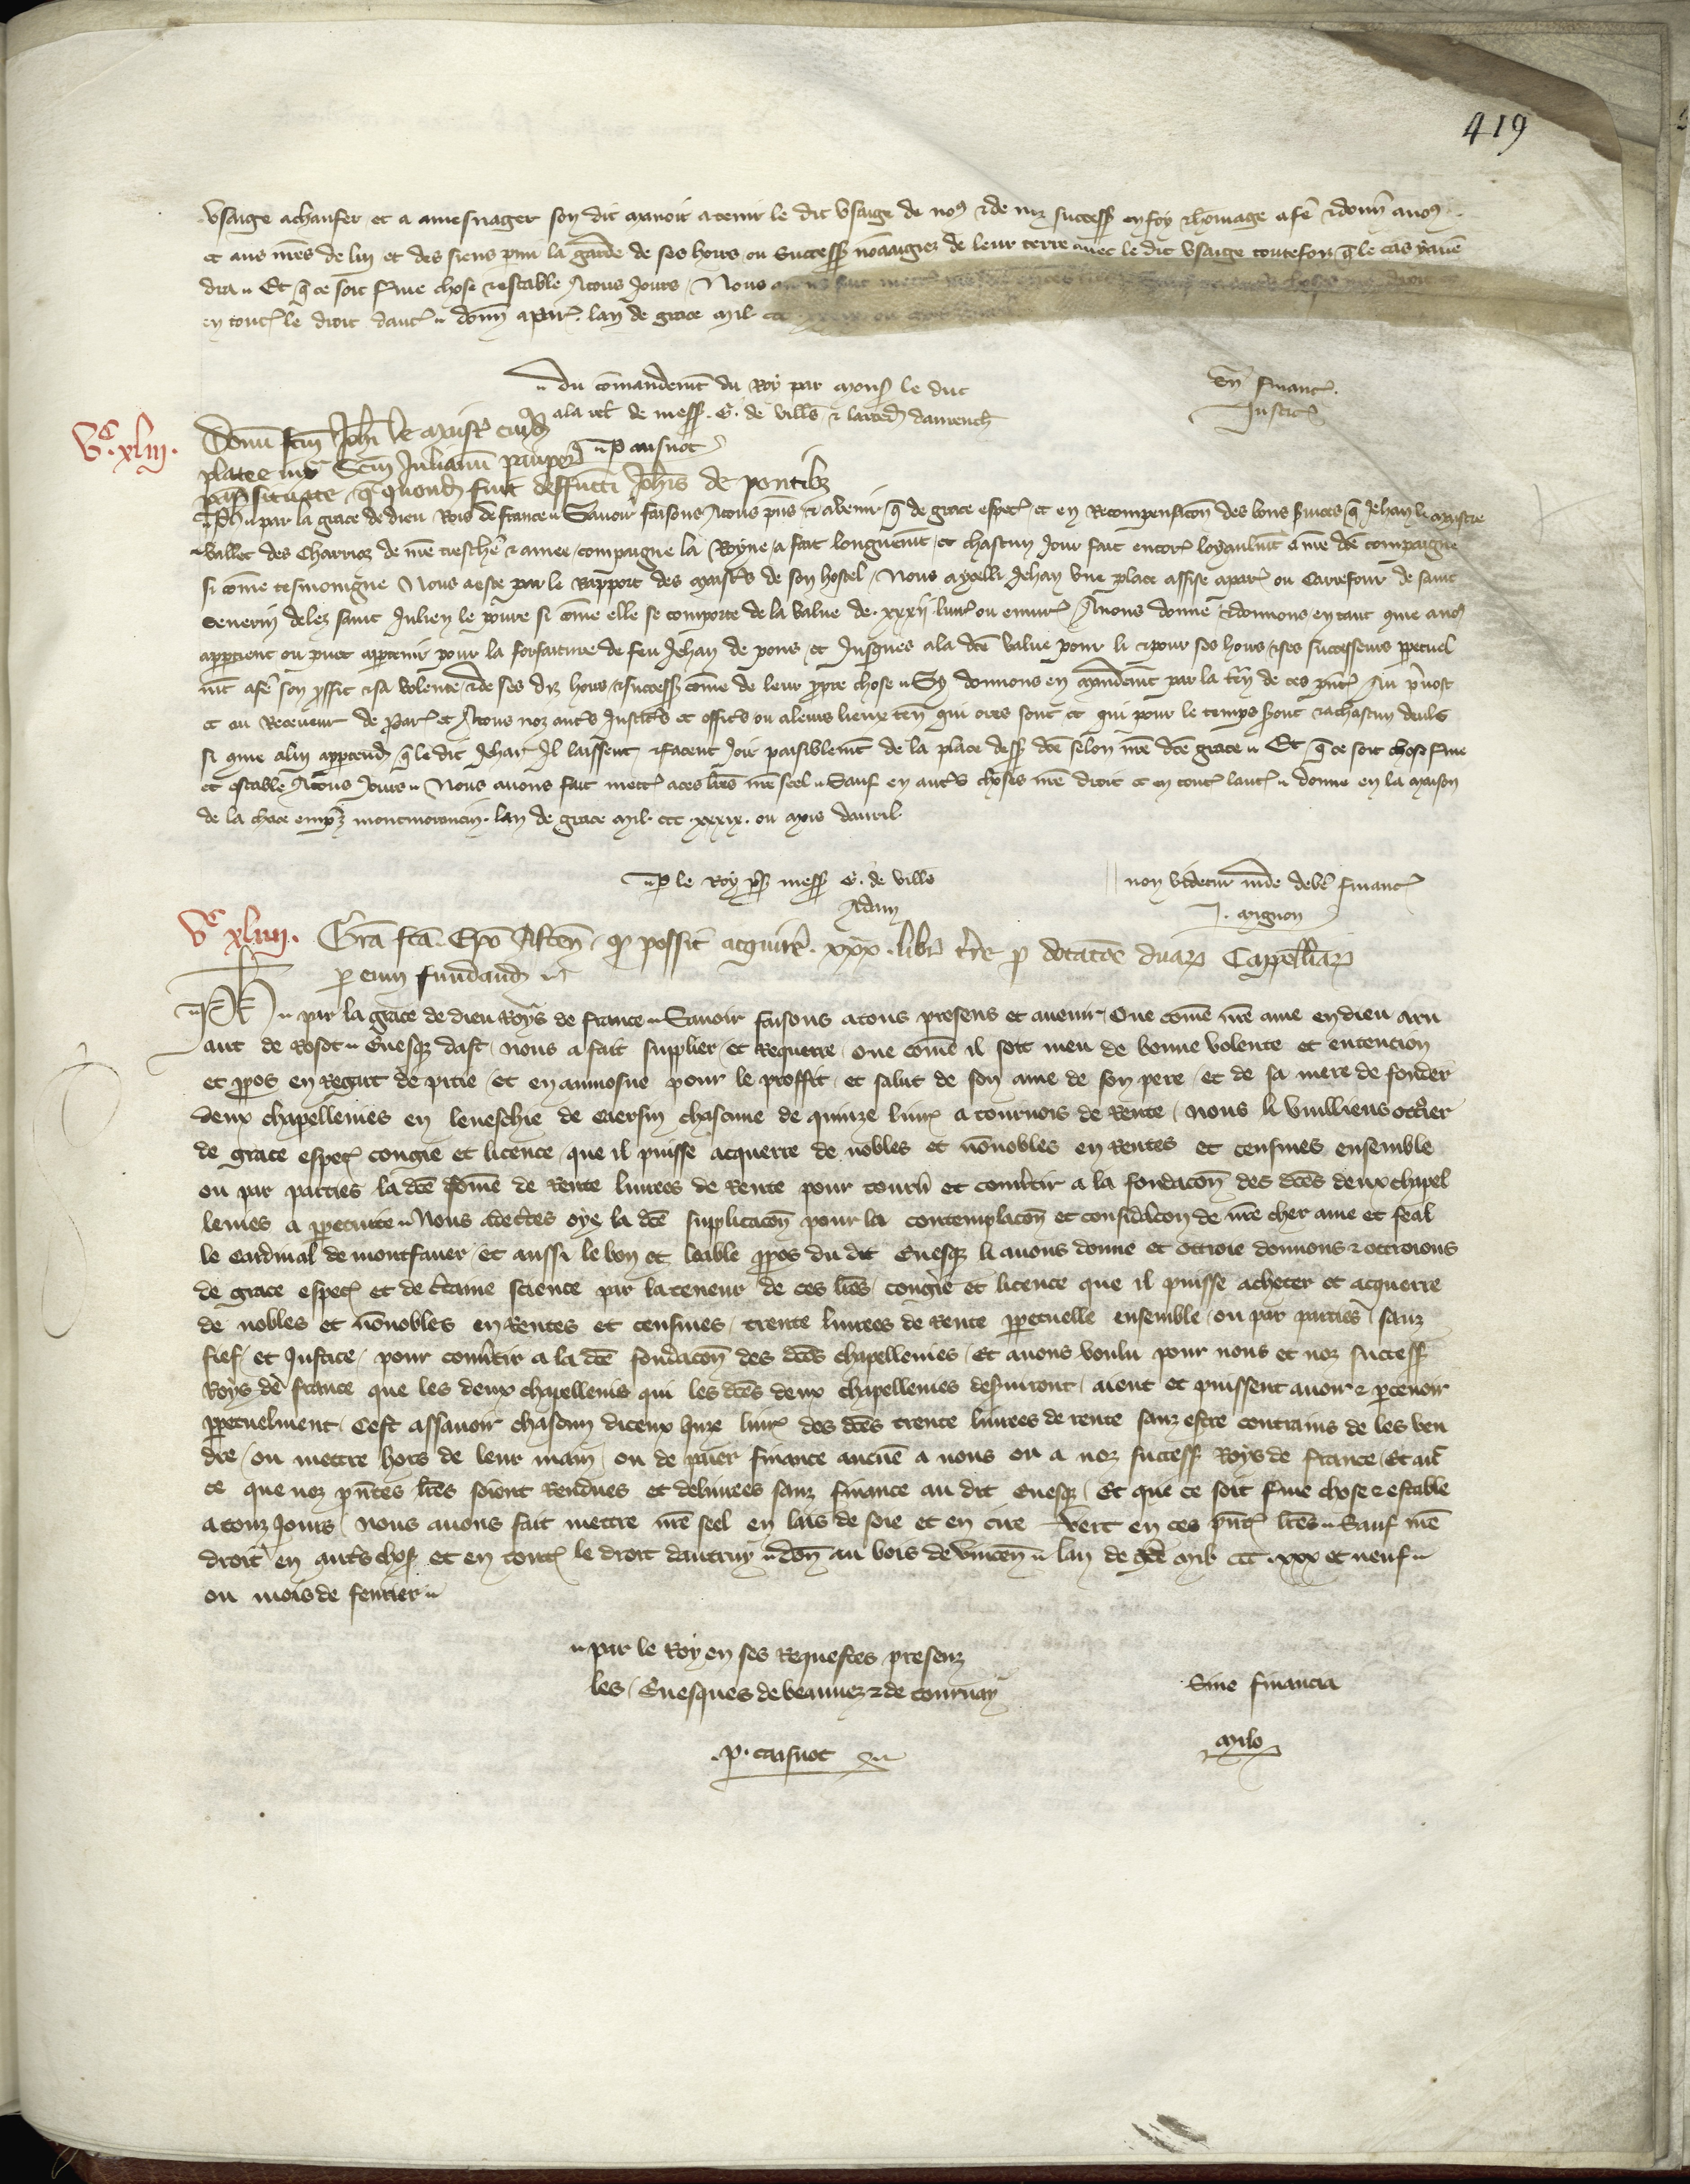 419
usaige achaufer et a amesnager son dit manoir a tenir le dit usaige de nos et de noz success en foy et homage a fe et donn anos
et aus mes de luy et des siens parmi la garde de ses hoirs ou success nonaagiez de leur terre avec le dit usaige toutefoiz q le cas y aven
dra Et q ce soit ferme chose et estable a touz jours Nous avons fait mettre
en tout le droit dautr donn a par lan de grace mil ccc xxxix ou
du comandemt du Roy par mons le duc
a la rel de mess G. de Vill et larced davrench
P. caisnot
Sn financ
Justic
Vc.xliii.
Donu fcm Johi le maistr cuiusd
platee iux Scm Julianu pauperem
par situate q quond fuit deffuncti Johis de pontibz
Ph par la grace de dieu Rois de france Savoir faisons a touz pns et avenir q de grace espec et en Recompensacon des bons services q Jehan le maistre
vallet des Charrioz de nre treschere et amee compaigne la Royne a fait longuemt et chascun jour fait encor loyaulmt a nre dce compaigne
si come tesmoingne Nous a este par le Rapport des maistres de son hostel Nous a ycelli Jehan une place assise a par ou Carrefour de saint
Severin delez saint Julien le povre si come elle se comporte de la value de xxxii livr ou environ Avons donne et donnons en tant que a nos
appartient ou puet appartenir pour la forfaiture de feu Jehan de pons et jusques a la dce value pour li et pour ses hoirs et ses successeurs perpetuel
mt a fe son proffit et sa volente et de ses diz hoirs et success come de leur propre chose Sy donnons en mandemt par la ten de ces pnt Au prevost
et au Receveur de Par et a touz noz autres Justic et offic ou a leurs lieux ten qui ores sont et qui pour le temps seront et a chascun deuls
si que a luy appartend q le dit Jehan Il laissent et facent joir paisiblemt de la place dess dce selon nre dce grace Et q ce soit chose ferme
et estable a touz jours Nous avons fait mettr a ces lres nre seel Sauf en autres choses nre droit et en tout lautr donne en la maison
de la chace empres montmorancin lan de grace mil ccc xxxix ou mois davril
P le Roy pns mess G. de Ville
Adam
non videtur inde debe financ
J. mignon
Vc xliiii.
Gra fca Epo Asten q possit acquire xxx libr tre p dotacoe duar Capellniar
p eum fundand
Ph par la grace de dieu Roys de france Savoir faisons a tous presens et avenir Que come nre ame en dieu arn
aut de Roset Evesq dast nous a fait supplier et Requerre que come il soit meu de bonne volente et entencion
et propos en Regart de pitie et en aumosne pour le proffit et salut de son ame de son pere et de sa mere de fonder
deux chapellenies en leveschie de Caersin chascune de quinze livr a tournois de Rente nous li vuilliens ottrier
de grace espec congie et licence que il puisse acquerre de nobles et nonnobles en Rentes et censives ensemble
ou par parties la dce some de Rente livrees de Rente pour tourn et convertir a la fondacon des dces deux chapel
lenies a perpetuite Nous adectes oye la dce supplicacon pour la contemplacon et consideracon de nre cher ame et feal
le Cardinal de montfaver et aussi le bon et leable propos du dit Evesq li avons donne et ottroie donnons et ottroions
de grace espec et de certaine science par la teneur de ces lres congie et licence que il puisse acheter et acquerre
de nobles et nonnobles en Rentes et censives trente livrees de Rente perpetuelle ensemble ou par parties sanz
fief et Justice pour convertir a la dce fondacon des dces chapellenies Et avons voulu pour nous et noz success
Roys de france que les deux chapellenis qui les dces deux chapellenies desserviront aient et puissent avoir et percevoir
perpetuelment Cest assavoir chascun diceux quize livr des dces trente livrees de rente sanz estre contrains de les ven
dre ou mettre hors de leur main ou de paier finance aucune a nous ou a noz success Roys de france Et avec
ce que noz pntes lres soient Rendues et delivrees sanz finance au dit Evesq Et que ce soit ferme chose et estable
a touz jours nous avons fait mettre nre seel en las de soie et en cire vert en ces pnt lres Sauf nre
droit en autres chos et en tout le droit dautruy don au bois de vincen lan de gce mil ccc xxx et neuf
ou mois de fevrier
par le Roy en ses Requestes presenz
les Evesques de beauvez et de tournay
P. caisnot
Sine financia
milo